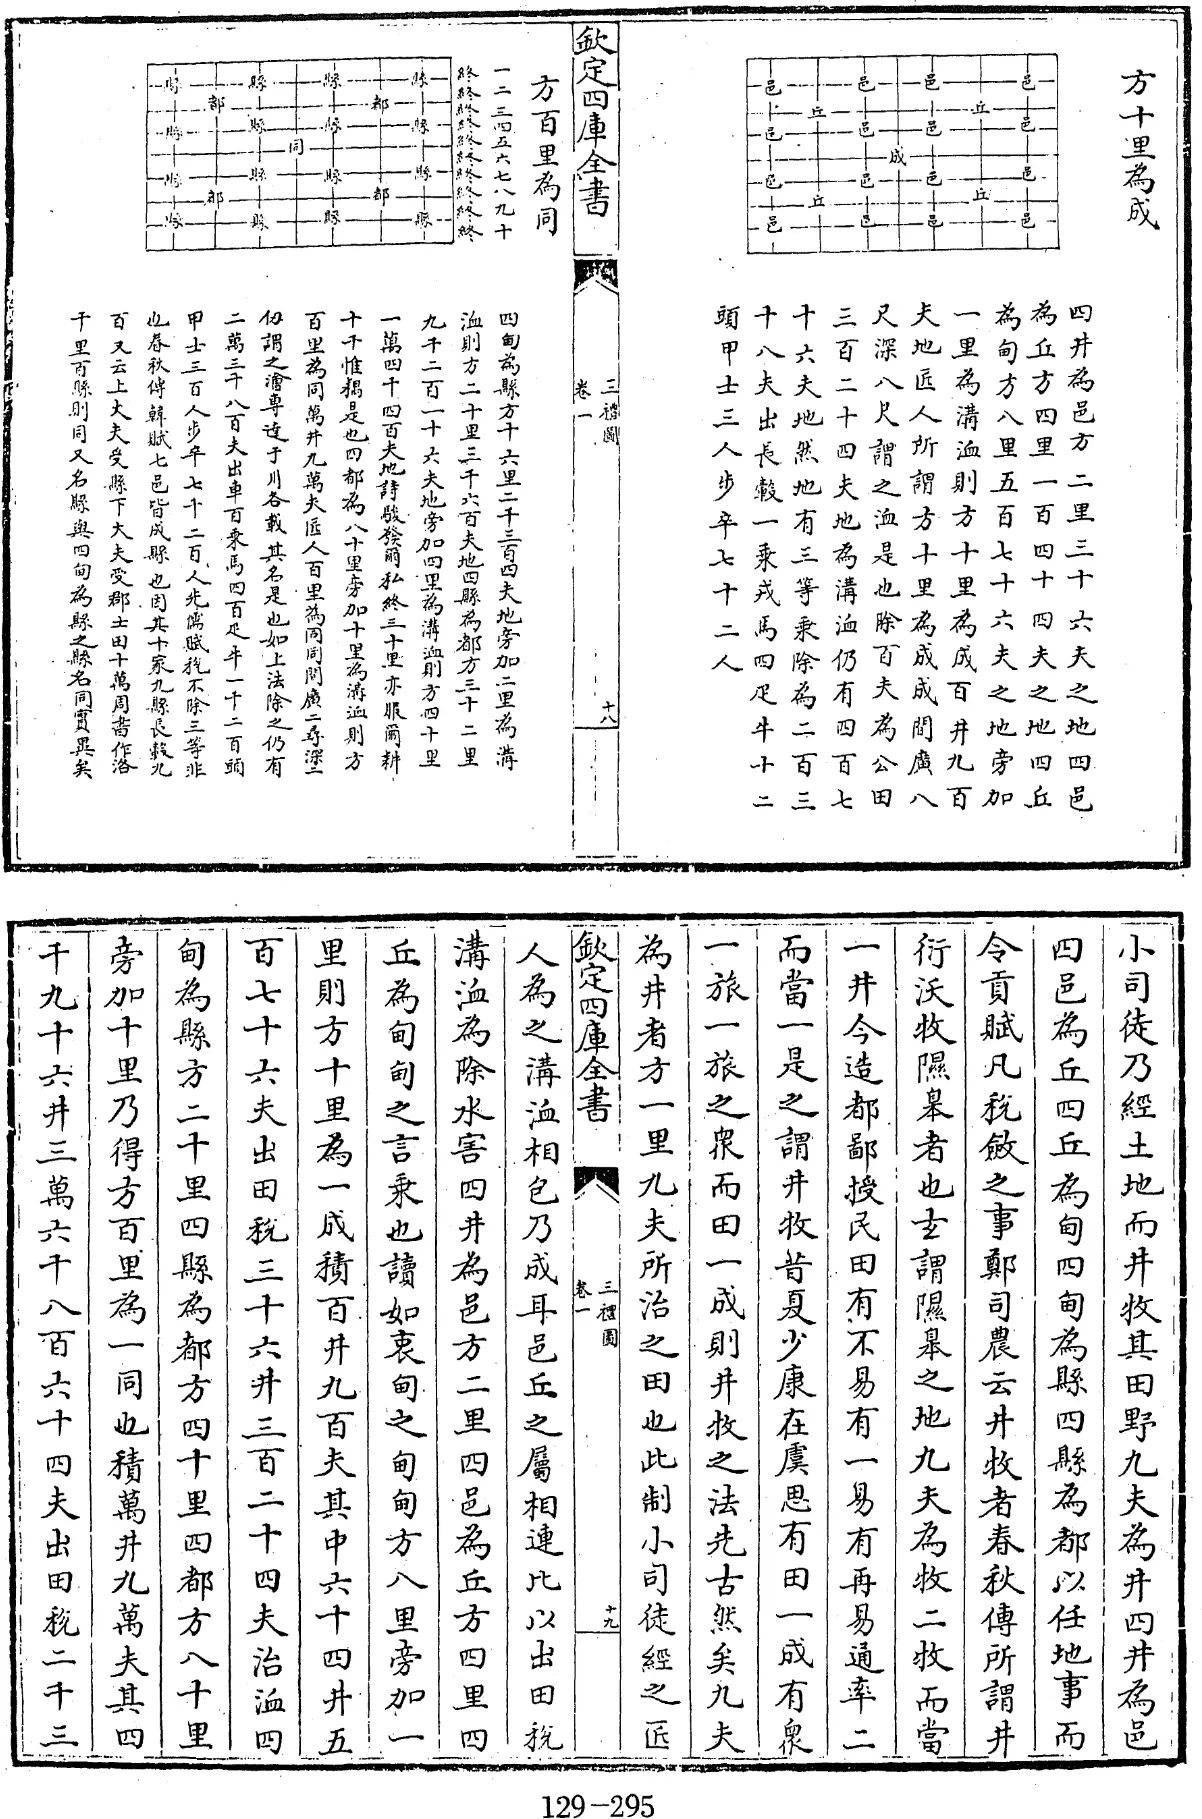 方十里為成
邑 邑 邑 邑
丘 丘
邑 邑 邑 邑
成
邑 邑 邑 邑
丘 丘
邑 邑 邑 邑
四井為邑方二里三十六夫之地四邑
為丘方四里一百四十四夫之地四丘
為甸方八里五百七十六夫之地旁加
一里為溝洫則方十里為成百井九百
夫地匠人所謂方十里為成成間廣八
尺深八尺謂之洫是也除百夫為公田
三百二十四夫地為溝洫仍有四百七
十六夫地然地有三等乗除為二百三
十八夫出長轂一乗戎馬四疋牛十二
頭甲士三人步卒七十二人
欽定四庫全書
三禮圖
卷一
十八
方百里為同
一二三四五六七八九十
終終終終終終終終終終
縣 縣 縣 縣
都 都
縣 縣 縣 縣
同
縣 縣 縣 縣
都 都
縣 縣 縣 縣
四甸為縣方十六里二千三百四夫地旁加二里為溝
洫則方二十里三千六百夫地四縣為都方三十二里
九千二百一十六夫地旁加四里為溝洫則方四十里
一萬四千四百夫地詩駿發爾私終三十里亦服爾耕
十千惟耦是也四都為八十里旁加十里為溝洫則方
百里為同萬井九萬夫匠人百里為同同間廣二尋深二
仞謂之澮專達于川各載其名是也如上法除之仍有
二萬三千八百夫出車百乗馬四百疋牛一千二百頭
甲士三百人步卒七千二百人先儒賦稅不除三等非
也春秋傳韓賦七邑皆成縣也因其十家九縣長轂九
百又云上大夫受縣下大夫受郡士田十萬周書作洛
千里百縣則同又名縣與四甸為縣之縣名同實異矣
小司徒乃經土地而井牧其田野九夫為井四井為邑
四邑為丘四丘為甸四甸為縣四縣為都以任地事而
令貢賦凡稅斂之事鄭司農云井牧者春秋傳所謂井
衍沃牧隰皋者也玄謂隰皋之地九夫為牧二牧而當
一井今造都鄙授民田有不易有一易有再易通率二
而當一是之謂井牧昔夏少康在虞思有田一成有衆
一旅一旅之衆而田一成則井牧之法先古然矣九夫
為井者方一里九夫所治之田也此制小司徒經之匠
欽定四庫全書
三禮圖
卷一
十九
人為之溝洫相包乃成耳邑丘之屬相連比以出田稅
溝洫為除水害四井為邑方二里四邑為丘方四里四
丘為甸甸之言乗也讀如衷甸之甸甸方八里旁加一
里則方十里為一成積百井九百夫其中六十四井五
百七十六夫出田稅三十六井三百二十四夫治洫四
甸為縣方二十里四縣為都方四十里四都方八十里
旁加十里乃得方百里為一同也積萬井九萬夫其四
千九十六井三萬六千八百六十四夫出田稅二千三
129-295